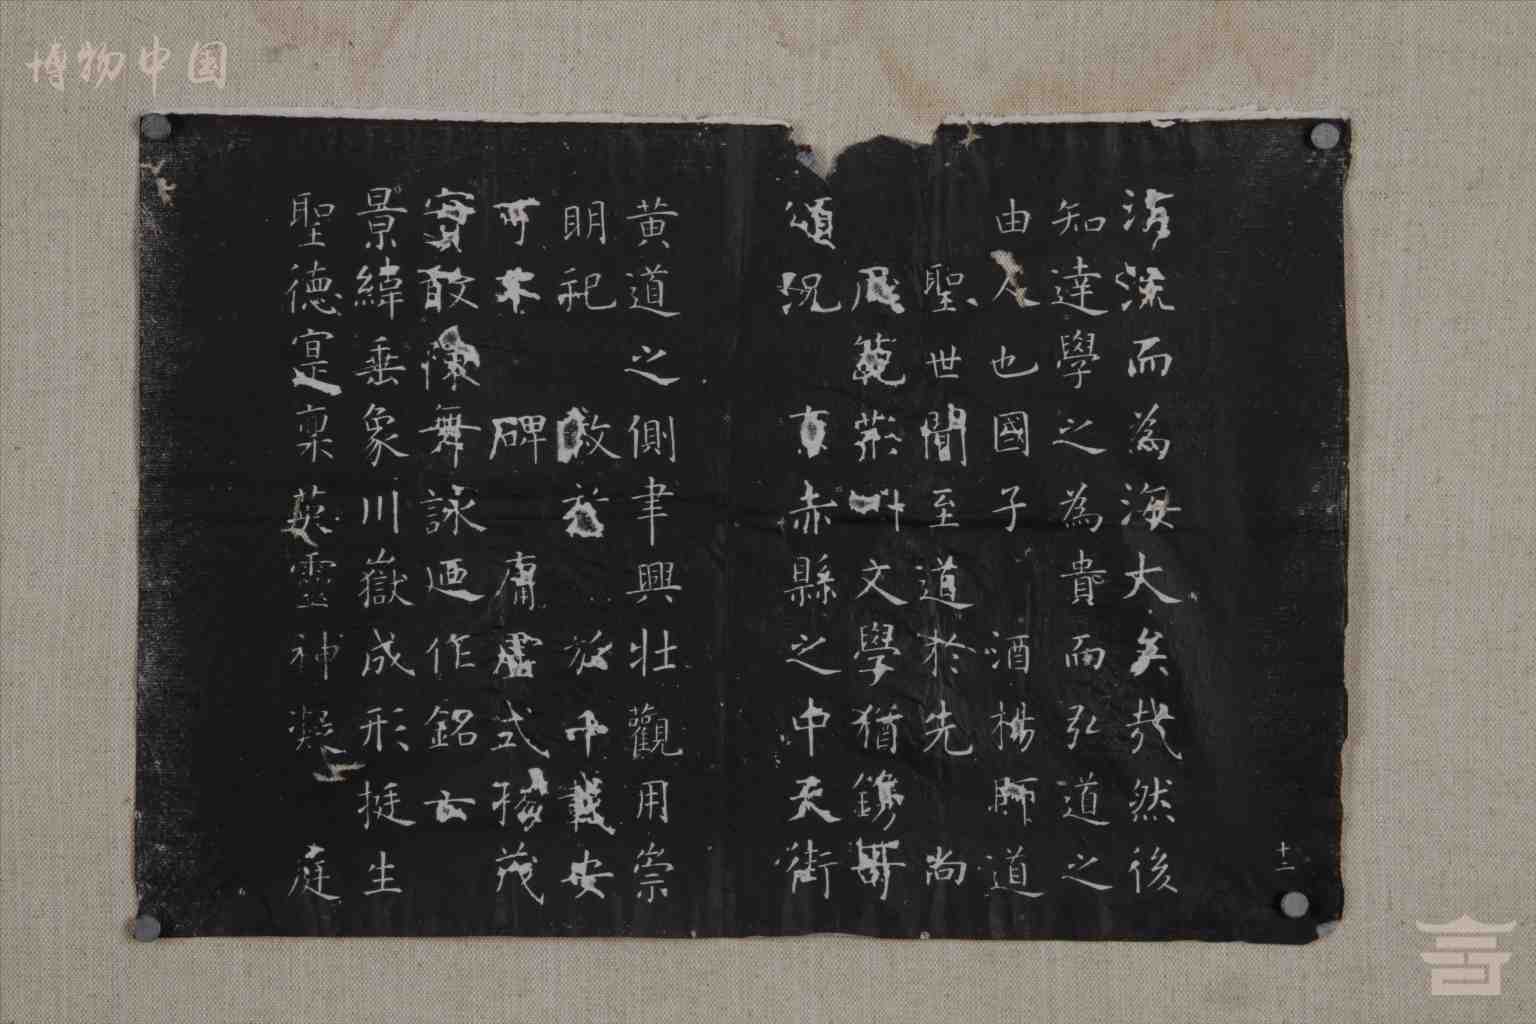 博物中国
海深而為海大矣哉然後
知達學之為貴而弘道之
由人也國子 酒楊師道
聖世聞至道於先 尚
風範 文學猶鐫哥
頌況 京赤縣之中天街
黃道之側聿興壯觀用崇
明祀 敬於 放千載安
可不 碑 庸虛式揚茂
實敢陳舞詠迺作銘云
景緯垂象川嶽成形挺生
聖德寔稟英靈神凝 庭
十二